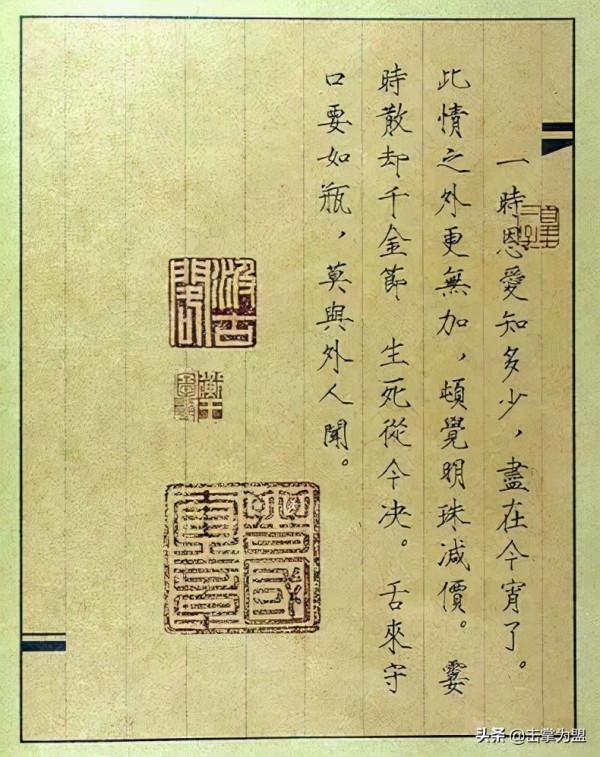 一時恩愛知多少，盡在今宵了。
此情之外更無加，頓覺明珠減價。 霎
時散却千金節 生死從今决。 舌來守
口要如瓶，莫與外人聞。
头条 @击掌为盟